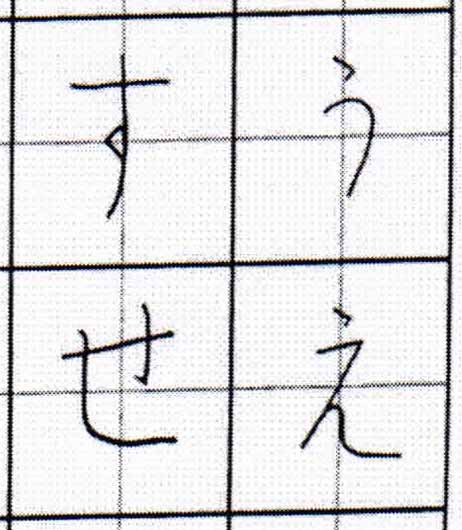 うえ
すせ